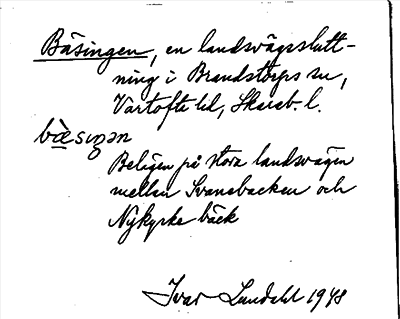 Bäsingen, en landsvägslutt-
ning i Brandstorps sn,
Vartofta hd, Skarab. l.
bæ̀siŋən
Belägen på stora landsvägen
mellan Svanebacken och
Nykyrke bäck
Ivar Lundahl 1948